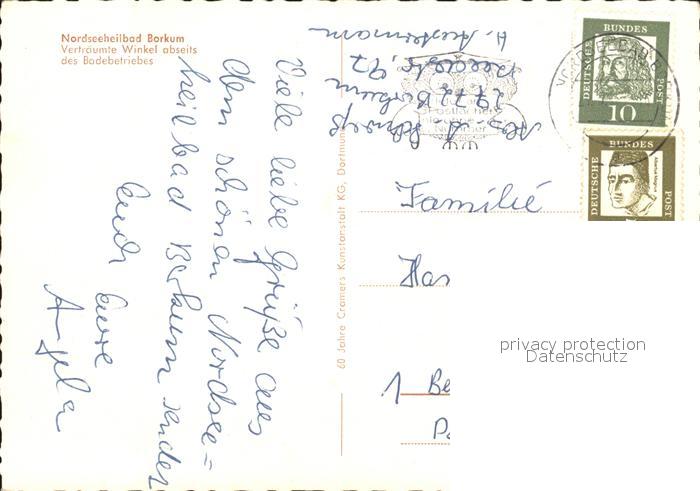 Nordseeheilbad Borkum
Verträumte Winkel abseits
des Badebetriebes
Viele liebe Grüße aus
dem schönen Nordsee=
heilbad Borkum sendet
Euch Eure
Angela
60 Jahre Cramers Kunstanstalt KG, Dortmund
2972 Borkum
Familie
Has
1 Be
DEUTSCHE
BUNDES
POST
10
DEUTSCHE
BUNDES
POST
privacy protection
Datenschutz